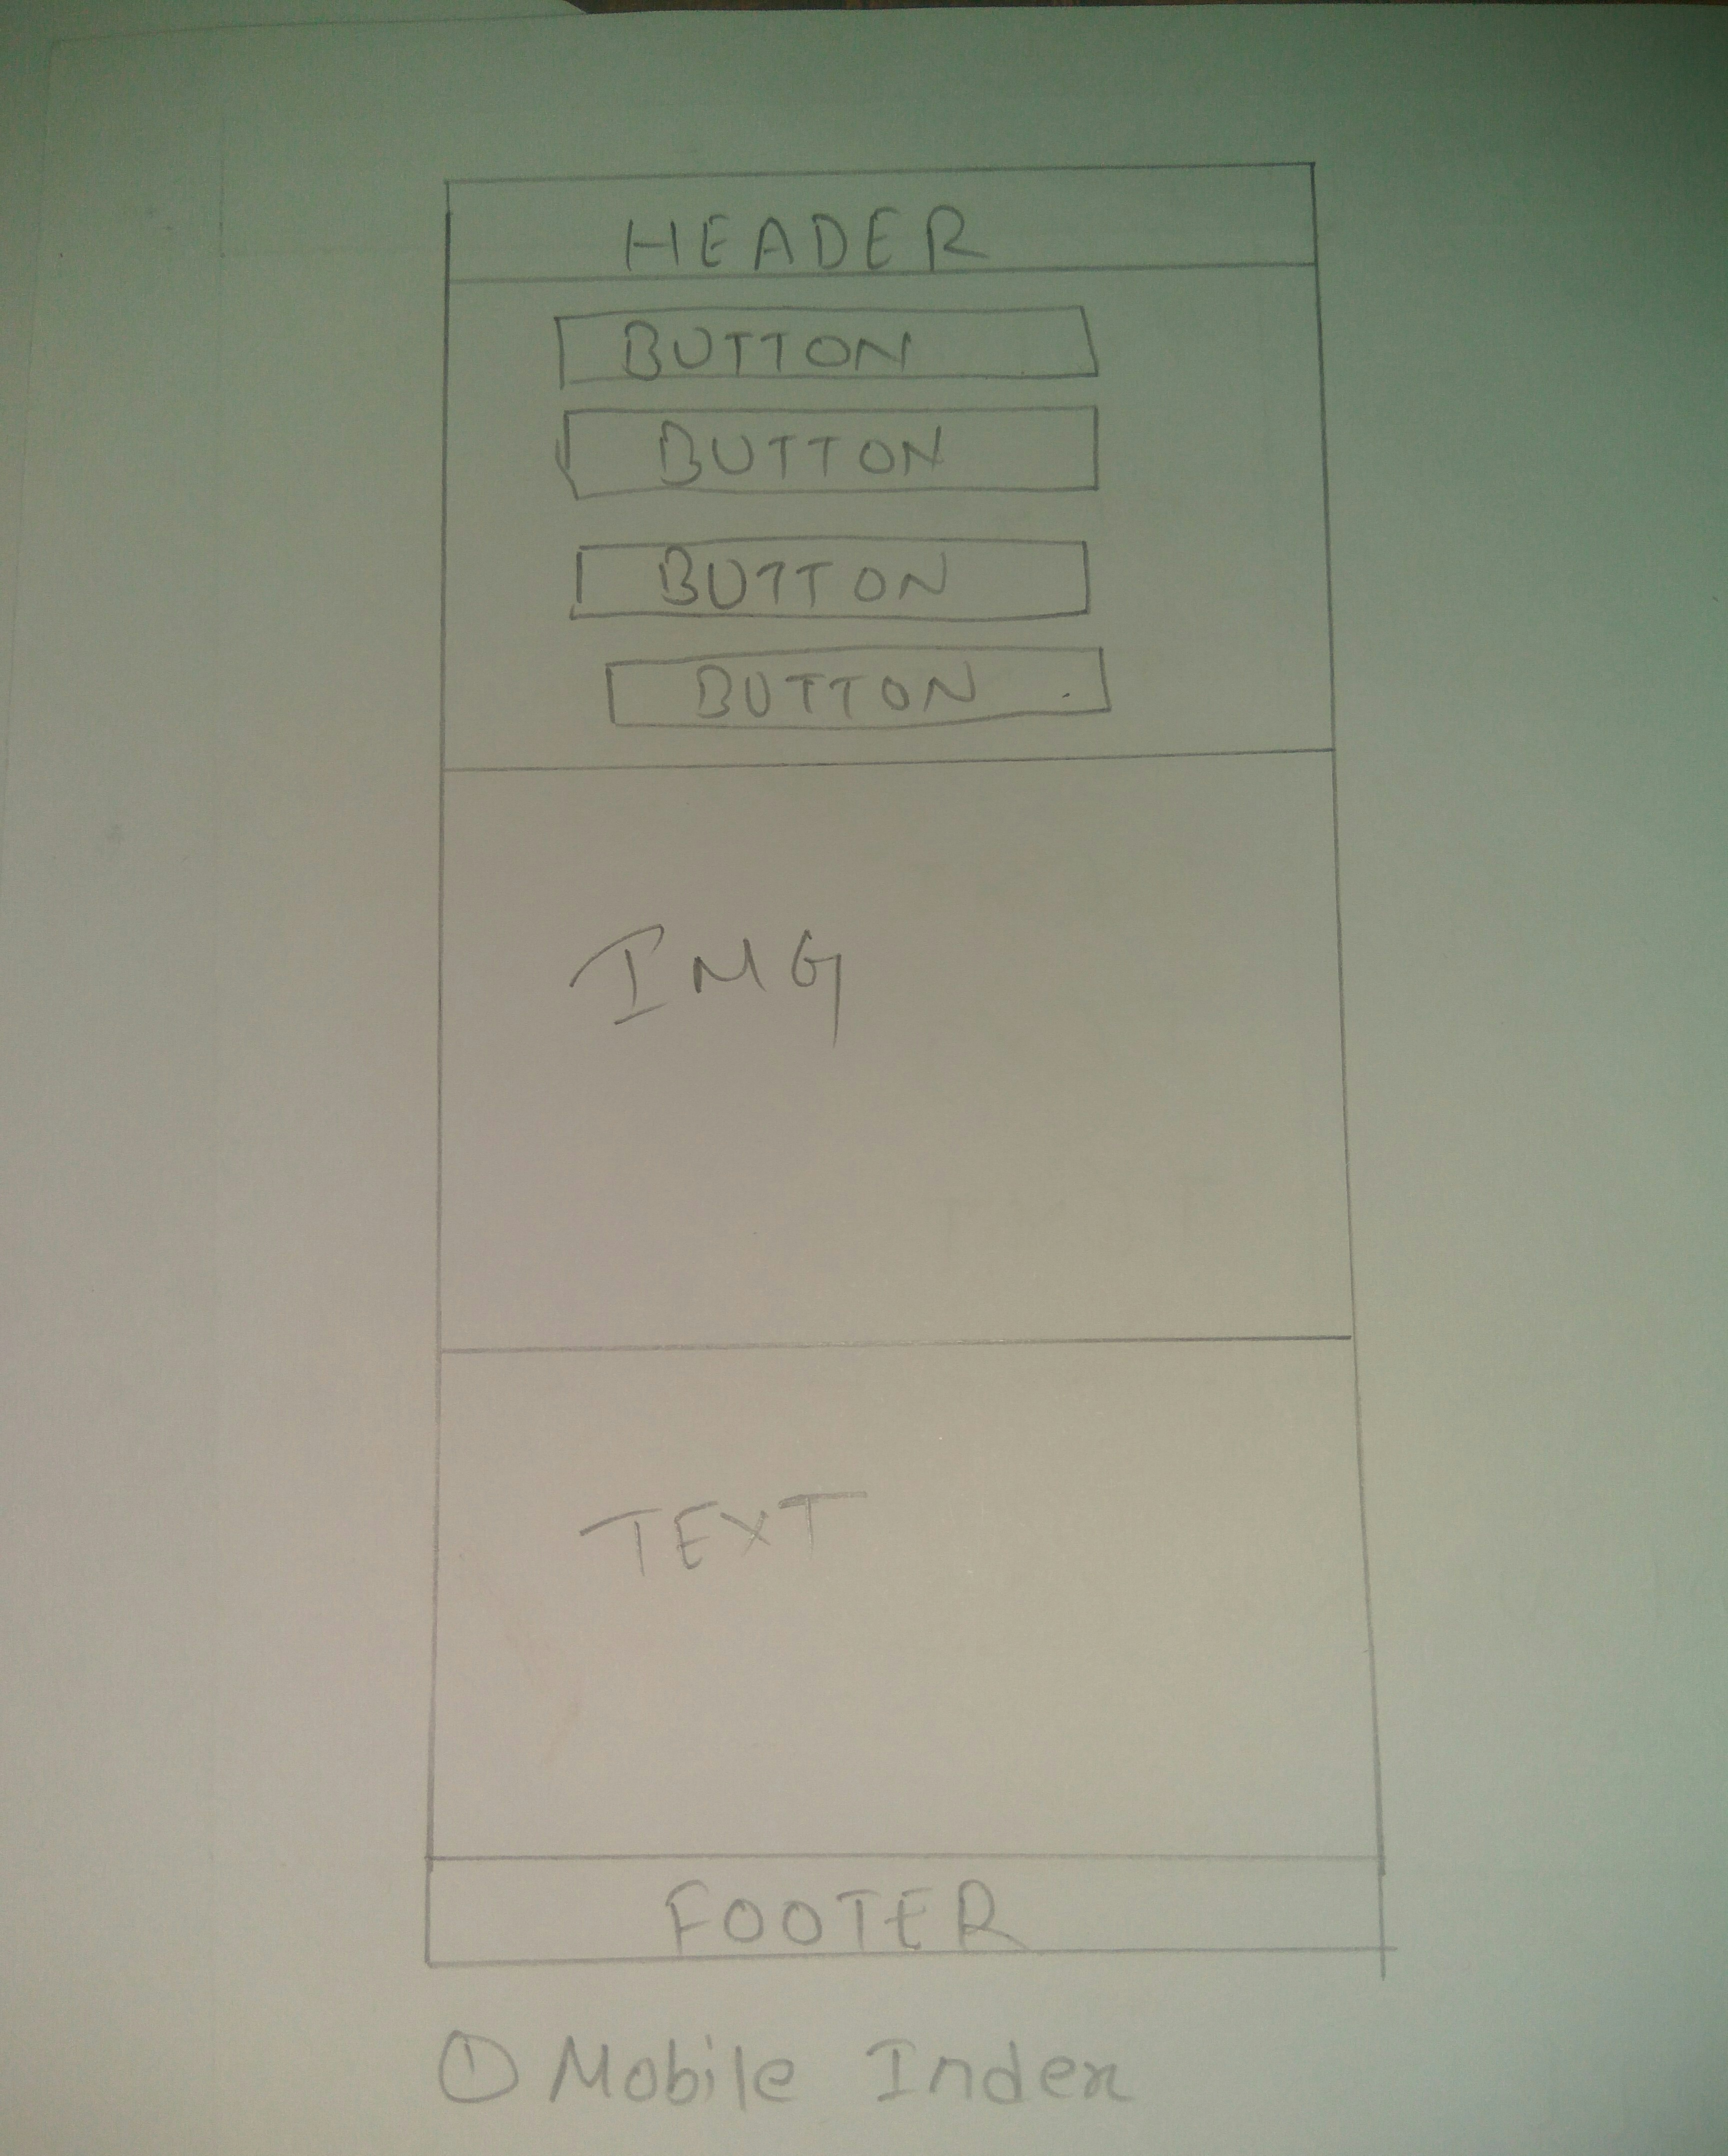 HEADER
BUTTON
BUTTON
BUTTON
BUTTON
IMG
TEXT
FOOTER
① Mobile Index